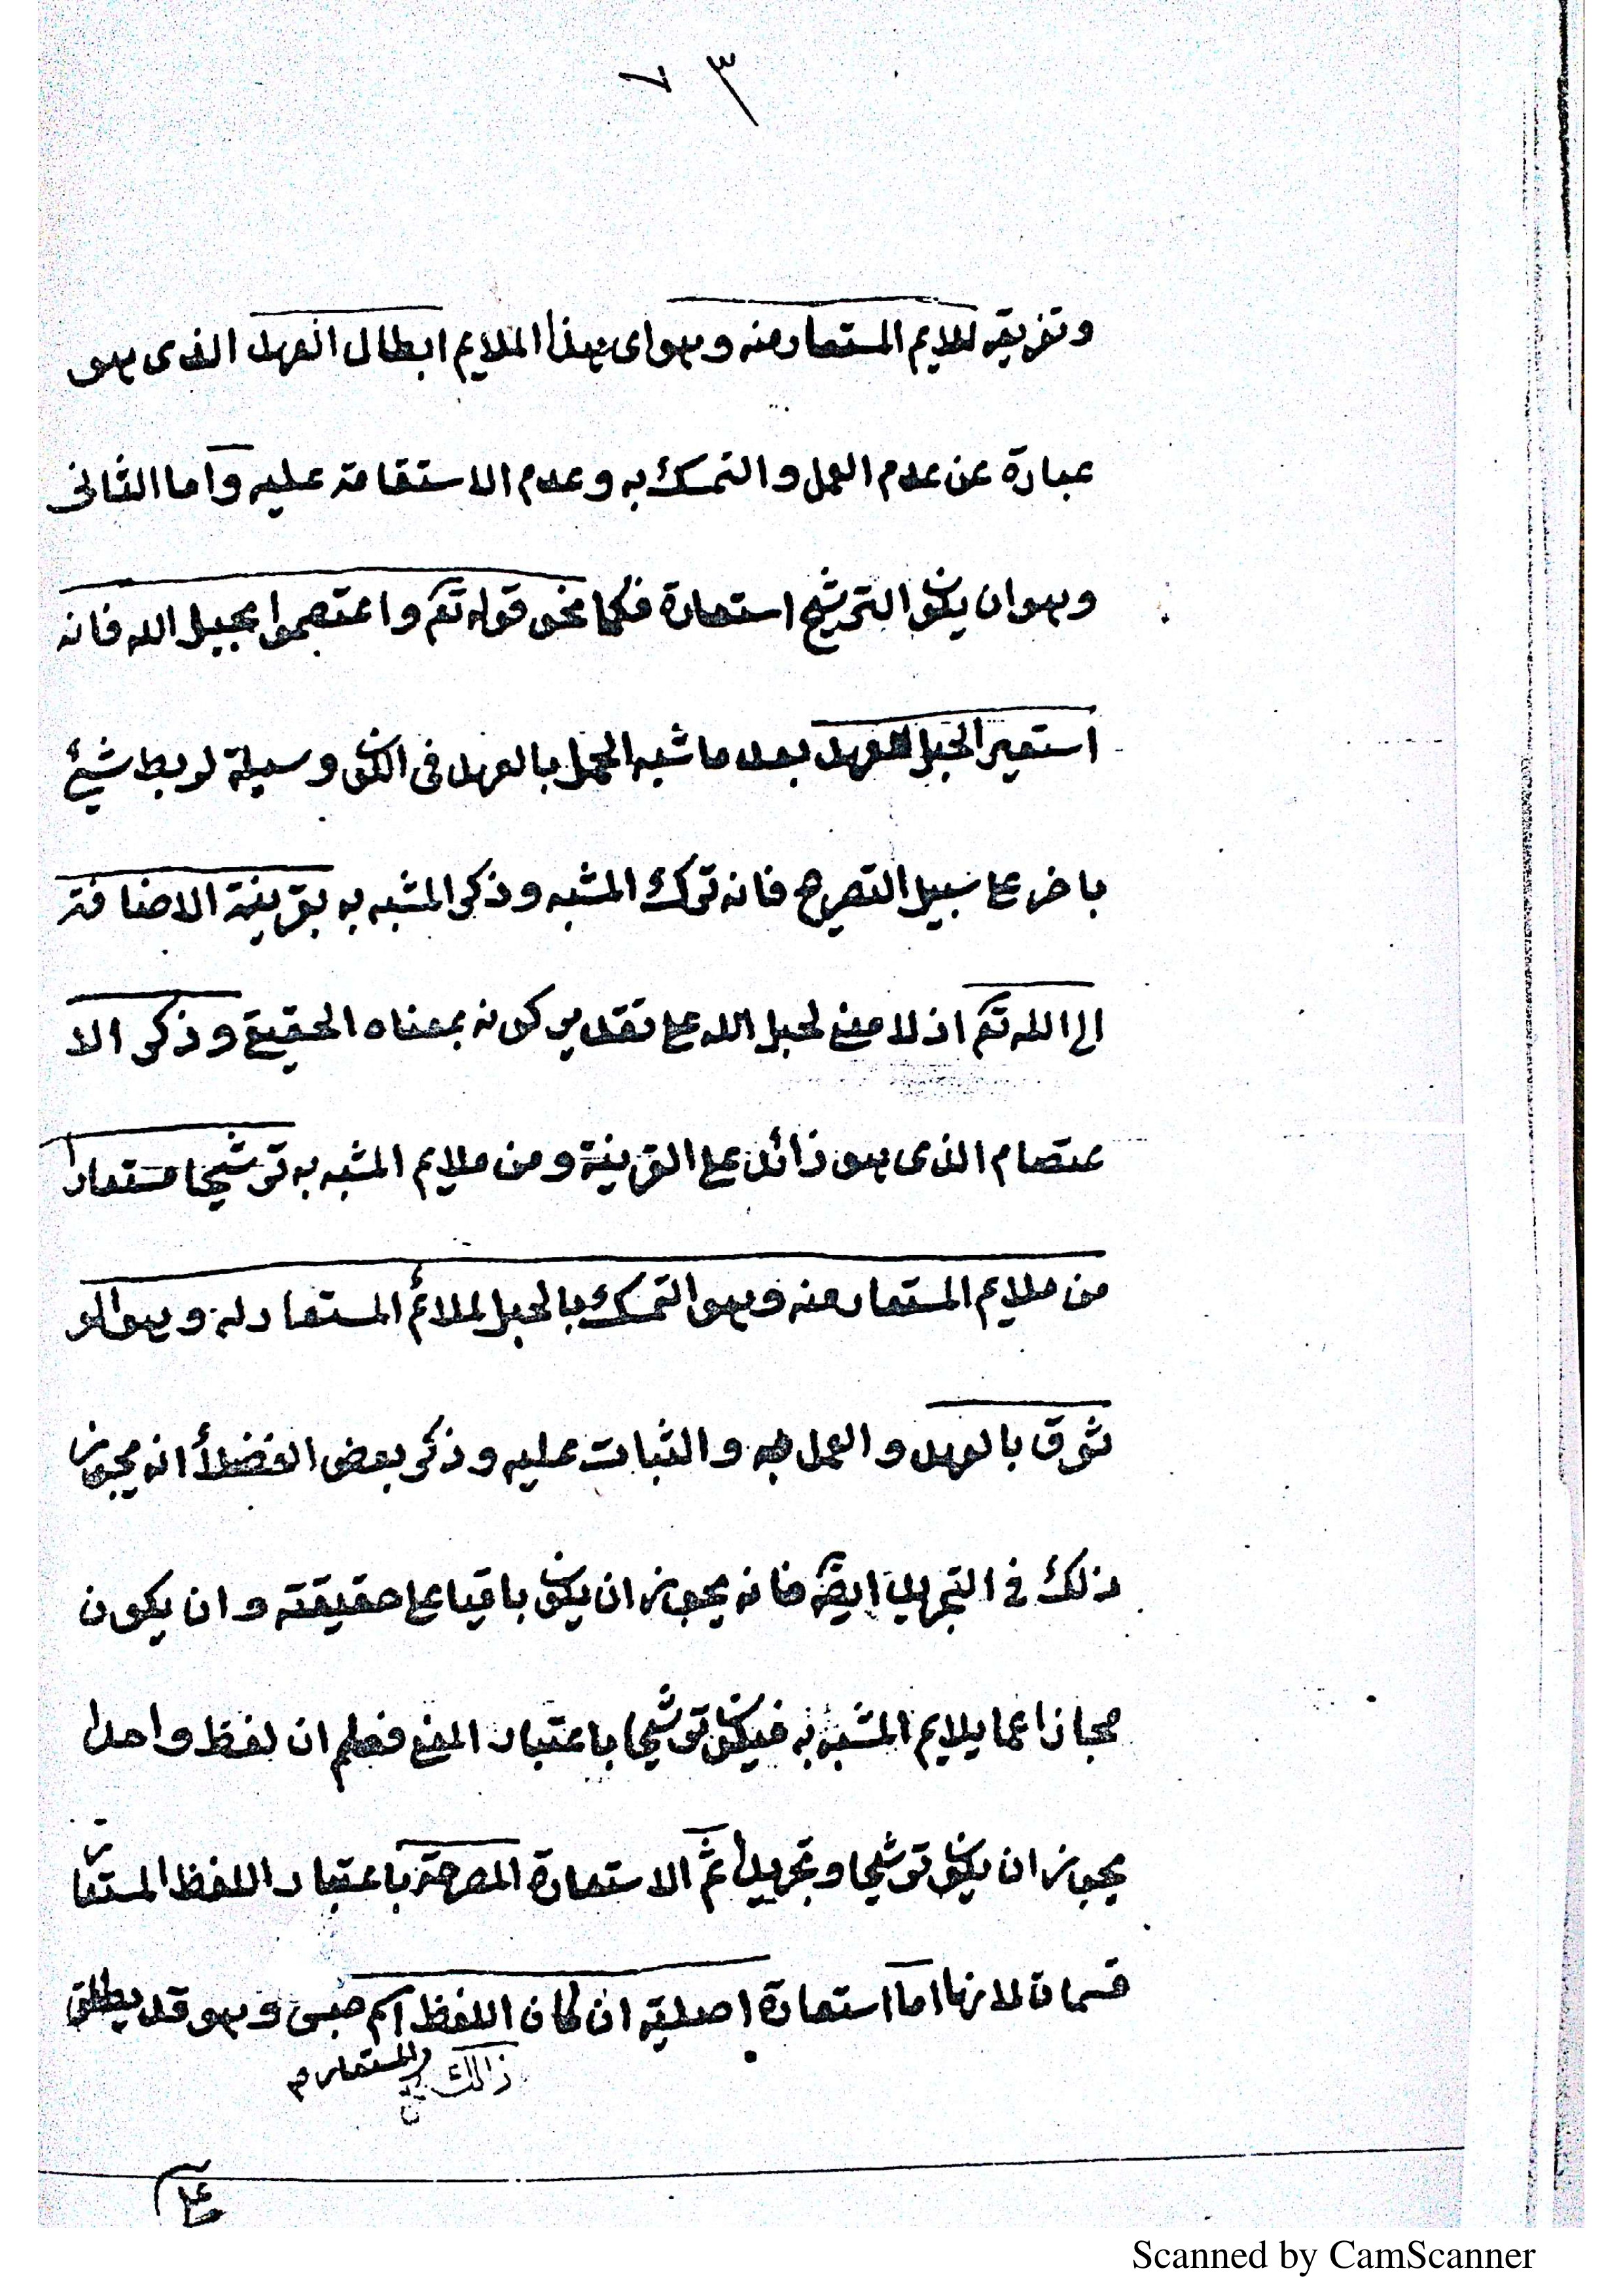 ٧٣
وتفريقه لملايم المستعار منه وهو اى هذا الملايم ابطال العهد الذى هو
عبارة عن عدم العمل والتمسك به وعدم الاستقامة عليه واما الثانى
وهو ان يكون الترشيح استعارة فكما نحو قوله تعم واعتصموا بحبل الله فانه
استعير الحبل للعهد بعد ما شبه الحبل بالعهد فى الكون وسيلة لربط شيئ
باخر على سبيل التصريح فانه ترك المشبه وذكر المشبه به بقرينة الاضافة
الى الله تعم اذ لا معنى لحبل الله على تقدير كونه بمعناه الحقيقى وذكر الا
عتصام الذى هو زائد على القرينة ومن ملايم المشبه به ترشيحا مستعارا
من ملايم المستعار منه وهو التمسك بالحبل لملائم المستعار له وهو الو
ثوق بالعهد والعمل به والثبات عليه وذكر بعض الفضلأ انه يجوز
ذلك فى التجريد ايضا فانه يجوز ان يكون باقيا على حقيقته وان يكون
مجازا عما يلايم المشبه به فيكون ترشيحا باعتبار المعنى فعلم ان لفظ واحدا
يجوز ان يكون ترشيحا وتجريدا ثم الاستعارة المصرحة باعتبار اللفظ المستعار
قسمان لانها اما استعارة اصلية ان كان اللفظ اسم جنس وهو قد يطلق
ذالك المستعار م